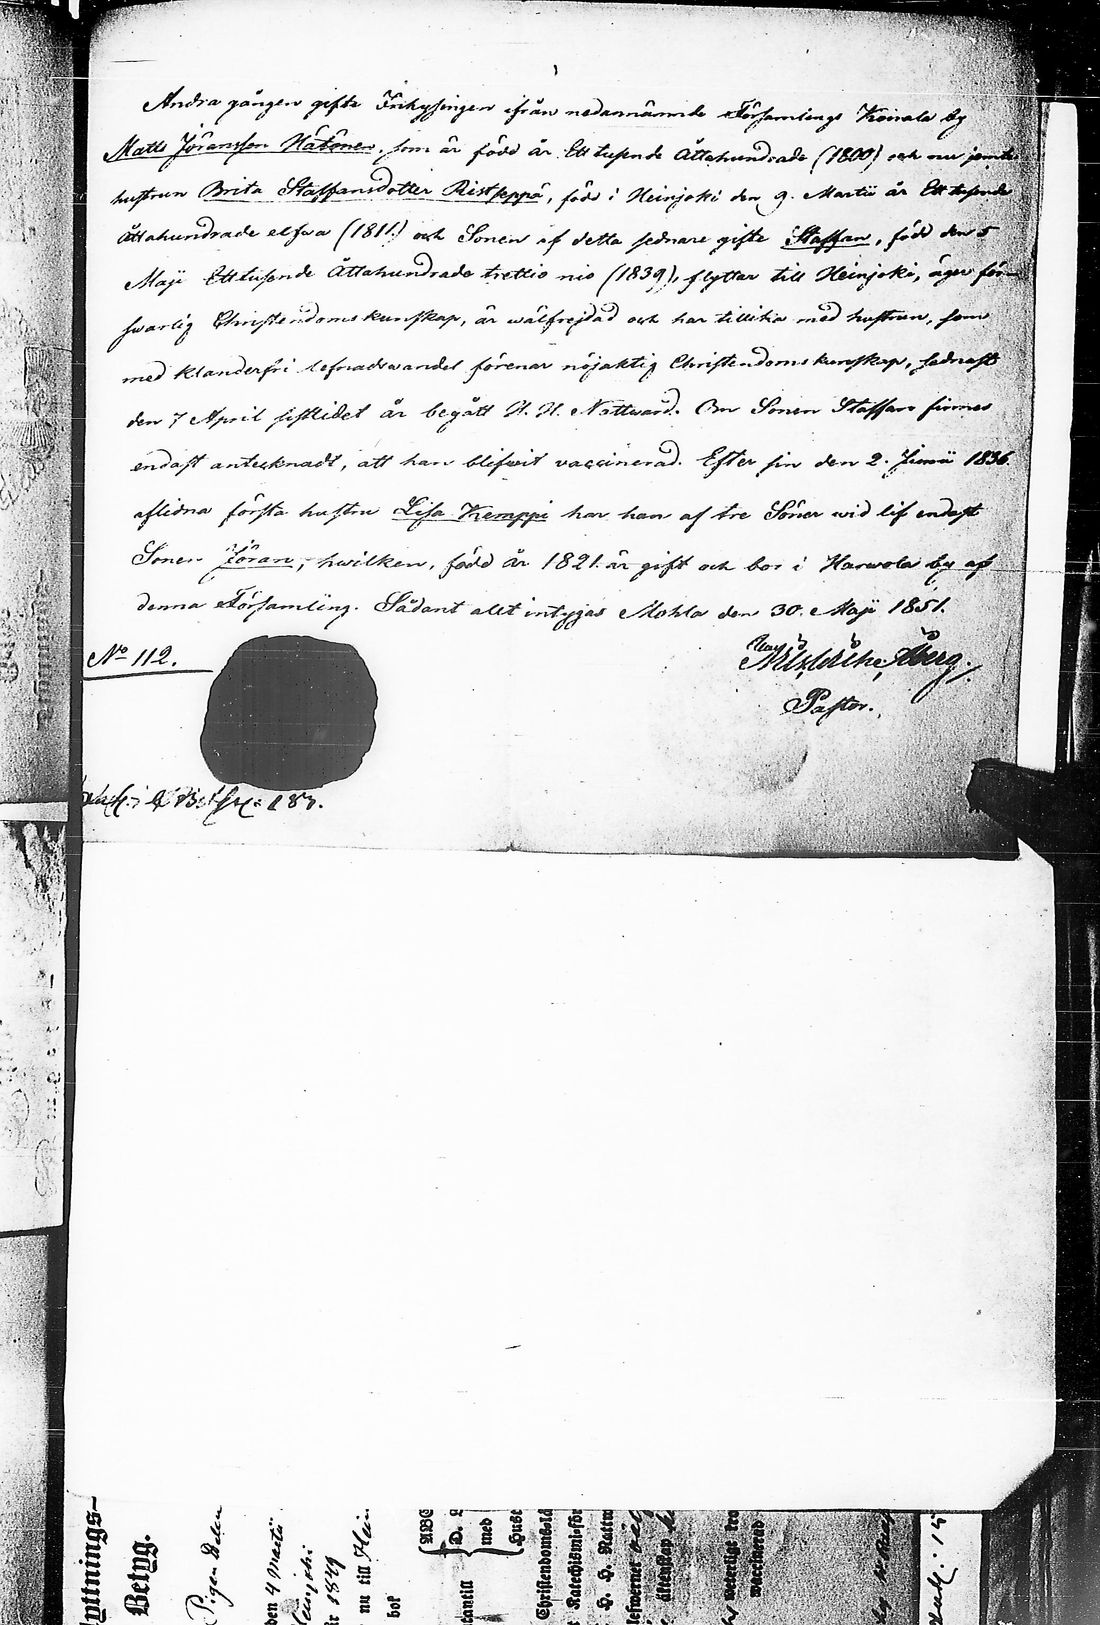 Andra gången gifte Inhysingen ifrån nedannämnde Församlings Koirala by
Matts Jöransson Hätönen, som är född år Ett tusende Åttahundrade (1800) och nu jemte
hustrun Brita Staffansdotter Ristseppä, född i Heinjoki den 9. Martii år Ett tusende
Åttahundrade elfwa (1811) och Sonen af detta sednare gifte Staffan, född den 5
Maji Ett tusende Åttahundrade trettio nio (1839), flyttar till Heinjoki, äger för-
swarlig Christendomskunskap, är wälfrejdad och har tillika med hustrun, som
med klanderfri lefnadswandel förenar nöjaktig Christendomskunskap, sednast
den 7 April sistlidet år begått H. H. Nattward. Om Sonen Staffan finnes
endast antecknadt, att han blifwit vaccinerad. Efter sin den 2. Junii 1836
aflidna första hustru Lisa Kemppi har han af tre Söner wid lif endast
Sonen Jöran, hwilken, född år 1821. är gift och bor i Harwola by af
denna Församling. Sådant allt intygas Mohla den 30. Maji 1851.
No 112.
Åberg.
Pastor.
yttnings-
Betyg.
Pigan Helen
den 4 Martii
Heinjoki
år 1849
nu till Hein
bok
cantill
ABC
D. L
med
Hust
Christendomskä
Katechismi-för
H. H. Nattw
lefwernet
äktenskap
werldligt fra
waccinerad